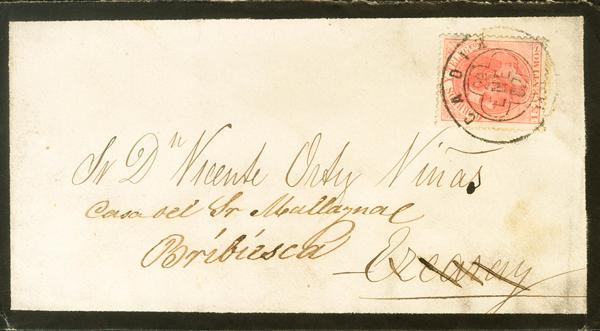 CADIZ
Sr Dn Vicente Ortiz Viñas
Casa del Sr Mallagnac
Bribiesca
Ezcaray